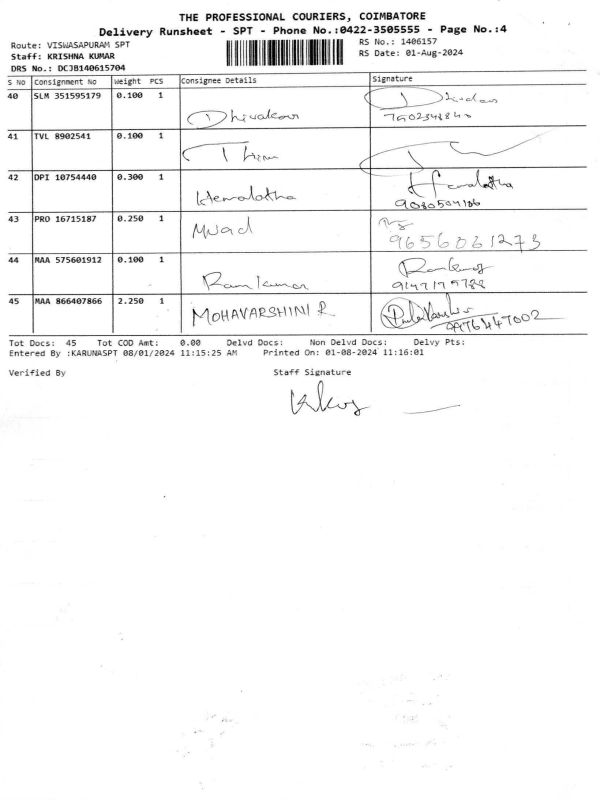 THE PROFESSIONAL COURIERS, COIMBATORE
Delivery Runsheet - SPT - Phone No.:0422-3505555 - Page No.:4
Route: VISWASAPURAM SPT RS No.: 1406157
Staff: KRISHNA KUMAR RS Date: 01-Aug-2024
DRS No.: DCJB140615704
S No Consignment No Weight PCS Consignee Details Signature
40 SLM 351595179 0.100 1 Dhivakar
41 TVL 8902541 0.100 1
42 DPI 10754440 0.300 1 Hemalatha Hemalatha
43 PRO 16715187 0.250 1
9656061273
44 MAA 575601912 0.100 1 Ramkumar
45 MAA 866407866 2.250 1 MOHAVARSHINI R
Tot Docs: 45 Tot COD Amt: 0.00 Delvd Docs: Non Delvd Docs: Delvy Pts:
Entered By :KARUNASPT 08/01/2024 11:15:25 AM Printed On: 01-08-2024 11:16:01
Verified By Staff Signature